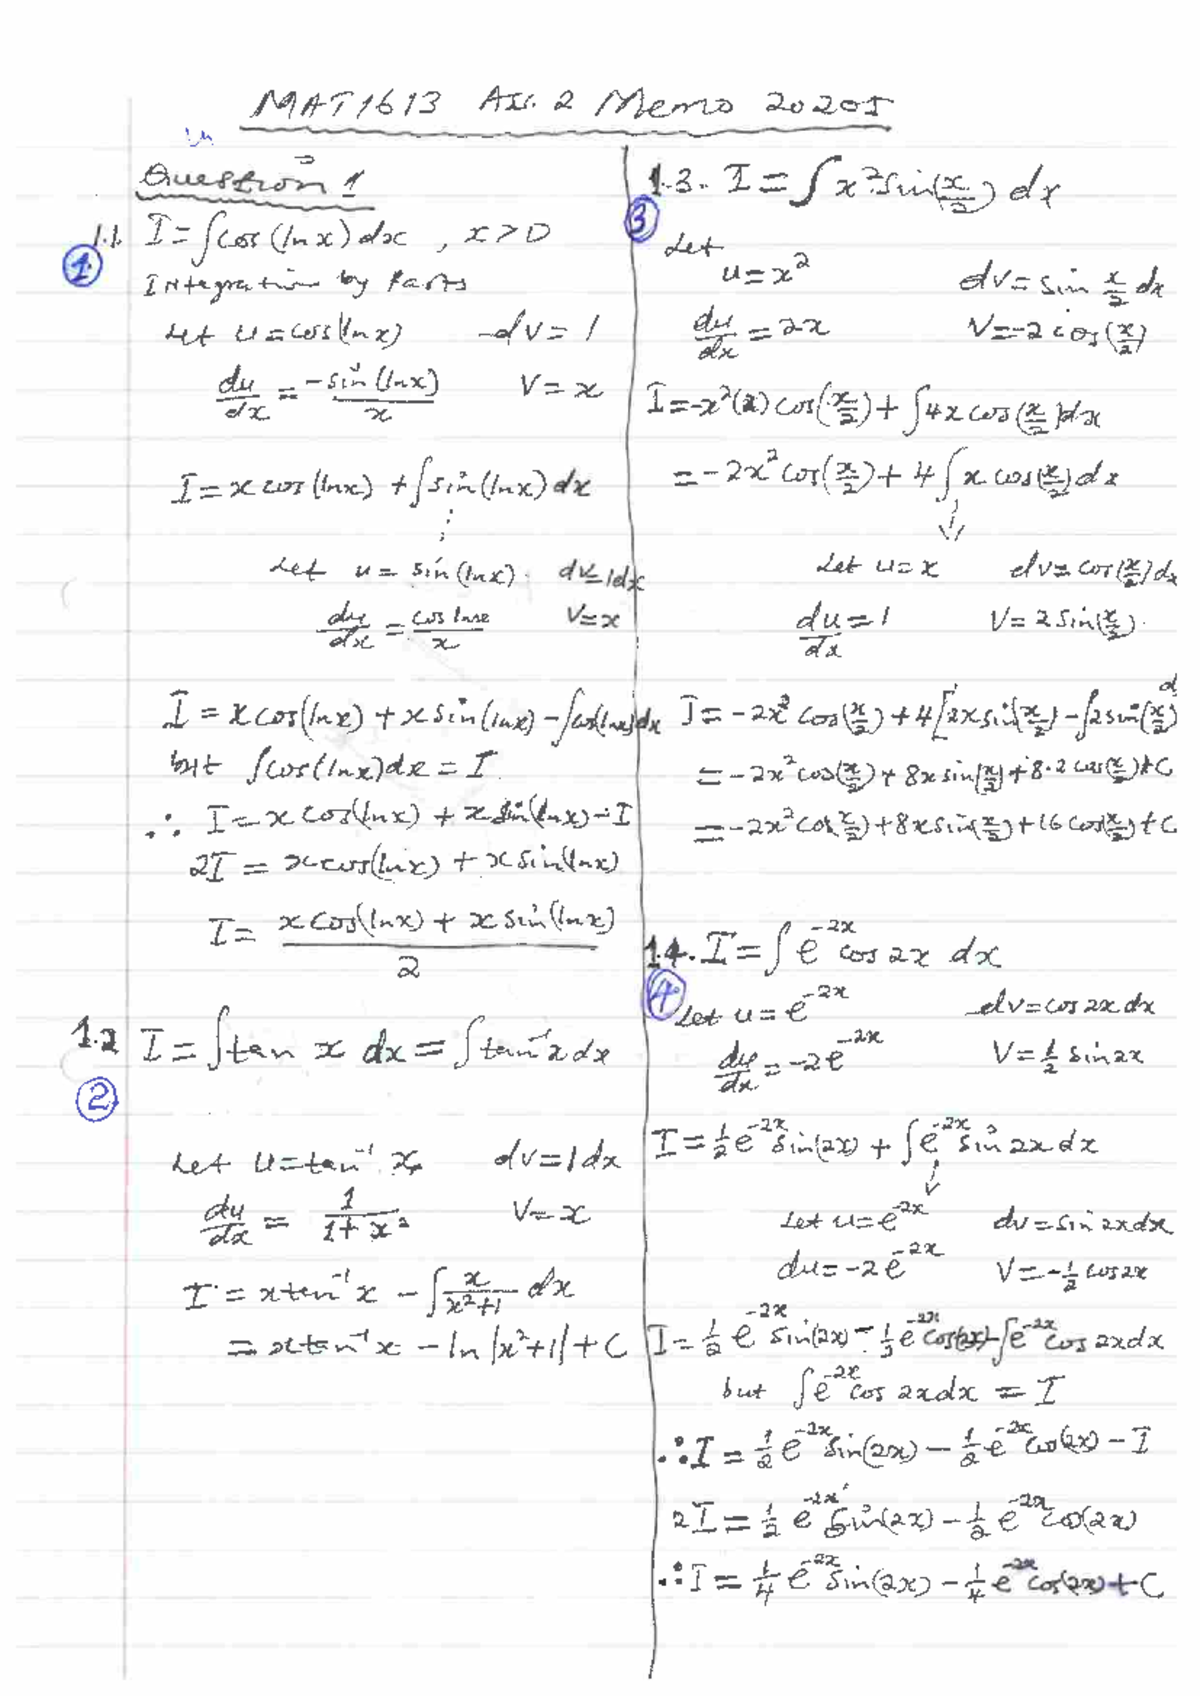 MAT1613 Ass. 2 Memo 2020SI
Question 1
1.1 I = ∫cos(lnx)dx , x>0
1
Integration by Parts
Let u = cos(lnx) dv = 1
du/dx = -sin(lnx)/x V = x
I = x cos(lnx) + ∫sin(lnx)dx
Let u = sin(lnx) dv=1dx
du/dx = cos lnx/x V=x
I = x cos(lnx) + x sin(lnx) - ∫cos(lnx)dx
but ∫cos(lnx)dx = I
∴ I = x cos(lnx) + x sin(lnx) - I
2I = x cos(lnx) + x sin(lnx)
I = x cos(lnx) + x sin(lnx)/2
1.2 I = ∫tan x dx = ∫tan⁻¹x dx
2
Let u = tan⁻¹ x dv = 1dx
du/dx = 1/1+x² V = x
I = x tan⁻¹ x - ∫ x/x²+1 dx
= x tan⁻¹ x - ln|x²+1| + C
1.3. I = ∫x² sin(x/2) dx
3
Let
u = x² dv = sin x/2 dx
du/dx = 2x V = -2 cos(x/2)
I = -x²(2) cos(x/2) + ∫4x cos(x/2)dx
= -2x² cos(x/2) + 4∫x cos(x/2)dx
Let u = x dv = cos(x/2)dx
du/dx = 1 V = 2 sin(x/2)
I = -2x² cos(x/2) + 4[2x sin(x/2) - ∫2 sin(x/2) d
= -2x² cos(x/2) + 8x sin(x/2) + 8·2 cos(x/2) + C
= -2x² cos(x/2) + 8x sin(x/2) + 16 cos(x/2) + C
1.4. I = ∫e⁻²ˣ cos 2x dx
4
Let u = e⁻²ˣ dv = cos 2x dx
du/dx = -2e⁻²ˣ V = 1/2 sin 2x
I = 1/2 e⁻²ˣ sin(2x) + ∫e⁻²ˣ sin 2x dx
Let u = e⁻²ˣ dv = sin 2x dx
du = -2e⁻²ˣ V = -1/2 cos 2x
I = 1/2 e⁻²ˣ sin(2x) - 1/2 e⁻²ˣ cos(2x) - ∫e⁻²ˣ cos 2x dx
but ∫e⁻²ˣ cos 2x dx = I
∴ I = 1/2 e⁻²ˣ sin(2x) - 1/2 e⁻²ˣ cos(2x) - I
2I = 1/2 e⁻²ˣ sin(2x) - 1/2 e⁻²ˣ cos(2x)
∴ I = 1/4 e⁻²ˣ sin(2x) - 1/4 e⁻²ˣ cos(2x) + C